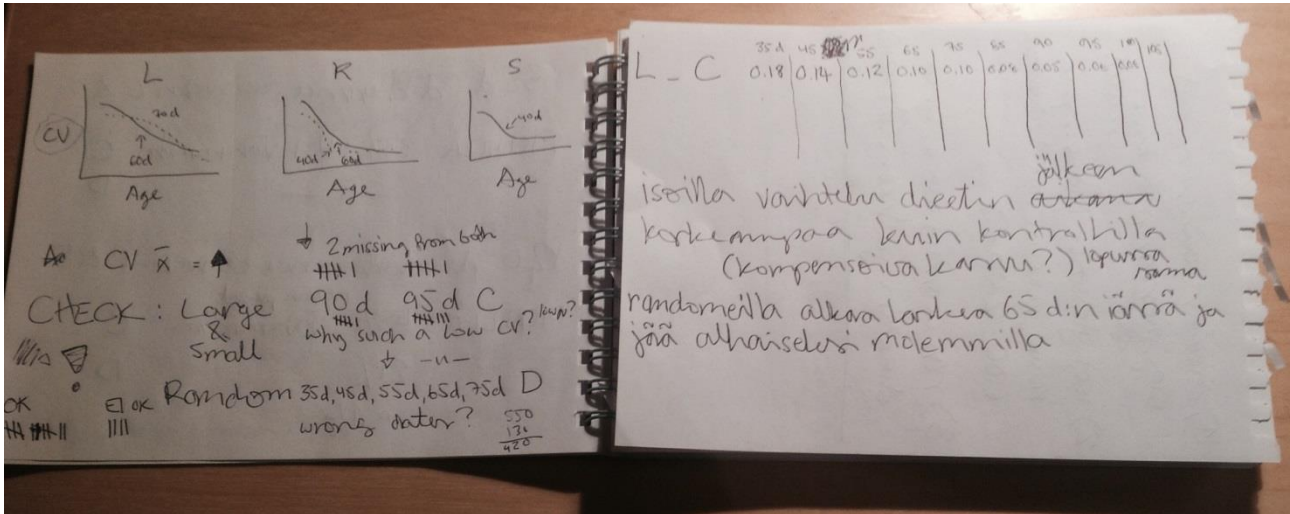 L R S
CV
70d
60d
40d 60d
40d
Age Age Age
CV x̄ =
2 missing from both
CHECK : Large 90d 95d C
&
Small
why such a low CV?
Random 35d, 45d, 55d, 65d, 75d D
OK EI OK
wrong dates?
550
130
420
L - C
35d 45 55 65 75 85 90 95 105
0.18 0.14 0.12 0.10 0.10 0.08 0.05
isoilla vaihtelu dieetin jälkeen
korkeampaa kuin kontrollilla
(kompensoiva kasvu?) lopussa sama
randomeilla alkaa laskea 65 d:n iässä ja
jää alhaiseksi molemmilla